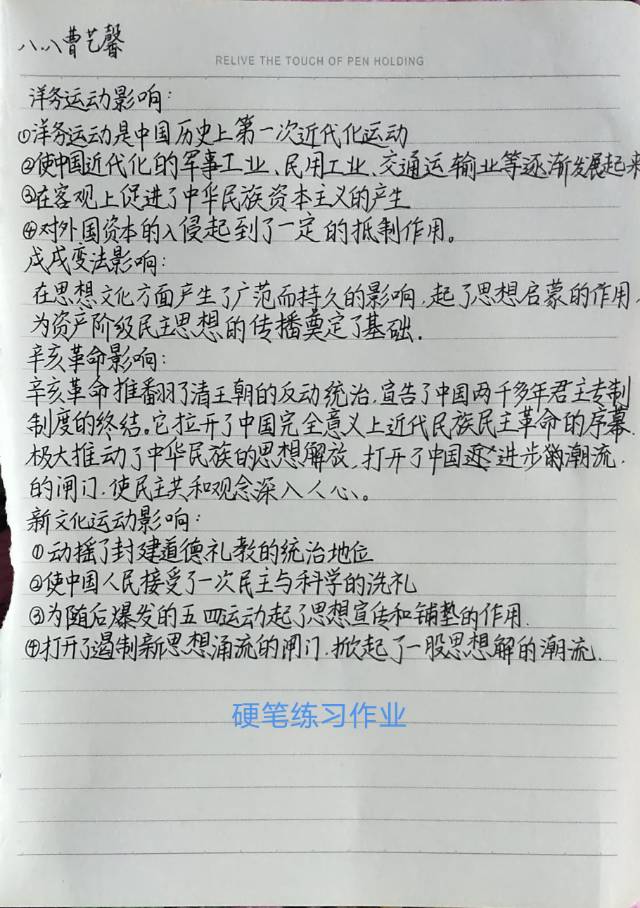 八.八曹艺馨
RELIVE THE TOUCH OF PEN HOLDING
洋务运动影响:
①洋务运动是中国历史上第一次近代化运动
②使中国近代化的军事工业、民用工业、交通运输业等逐渐发展起来
③在客观上促进了中华民族资本主义的产生
④对外国资本的入侵起到了一定的抵制作用。
戊戌变法影响:
在思想文化方面产生了广范而持久的影响,起了思想启蒙的作用,
为资产阶级民主思想的传播奠定了基础.
辛亥革命影响:
辛亥革命推翻了清王朝的反动统治,宣告了中国两千多年君主专制
制度的终结。它拉开了中国完全意义上近代民族民主革命的序幕.
极大推动了中华民族的思想解放,打开了中国进步潮流.
的闸门.使民主共和观念深入人心。
新文化运动影响:
①动摇了封建道德礼教的统治地位
②使中国人民接受了一次民主与科学的洗礼
③为随后爆发的五四运动起了思想宣传和铺垫的作用.
④打开了遏制新思想涌流的闸门.掀起了一股思想解的潮流.
硬笔练习作业